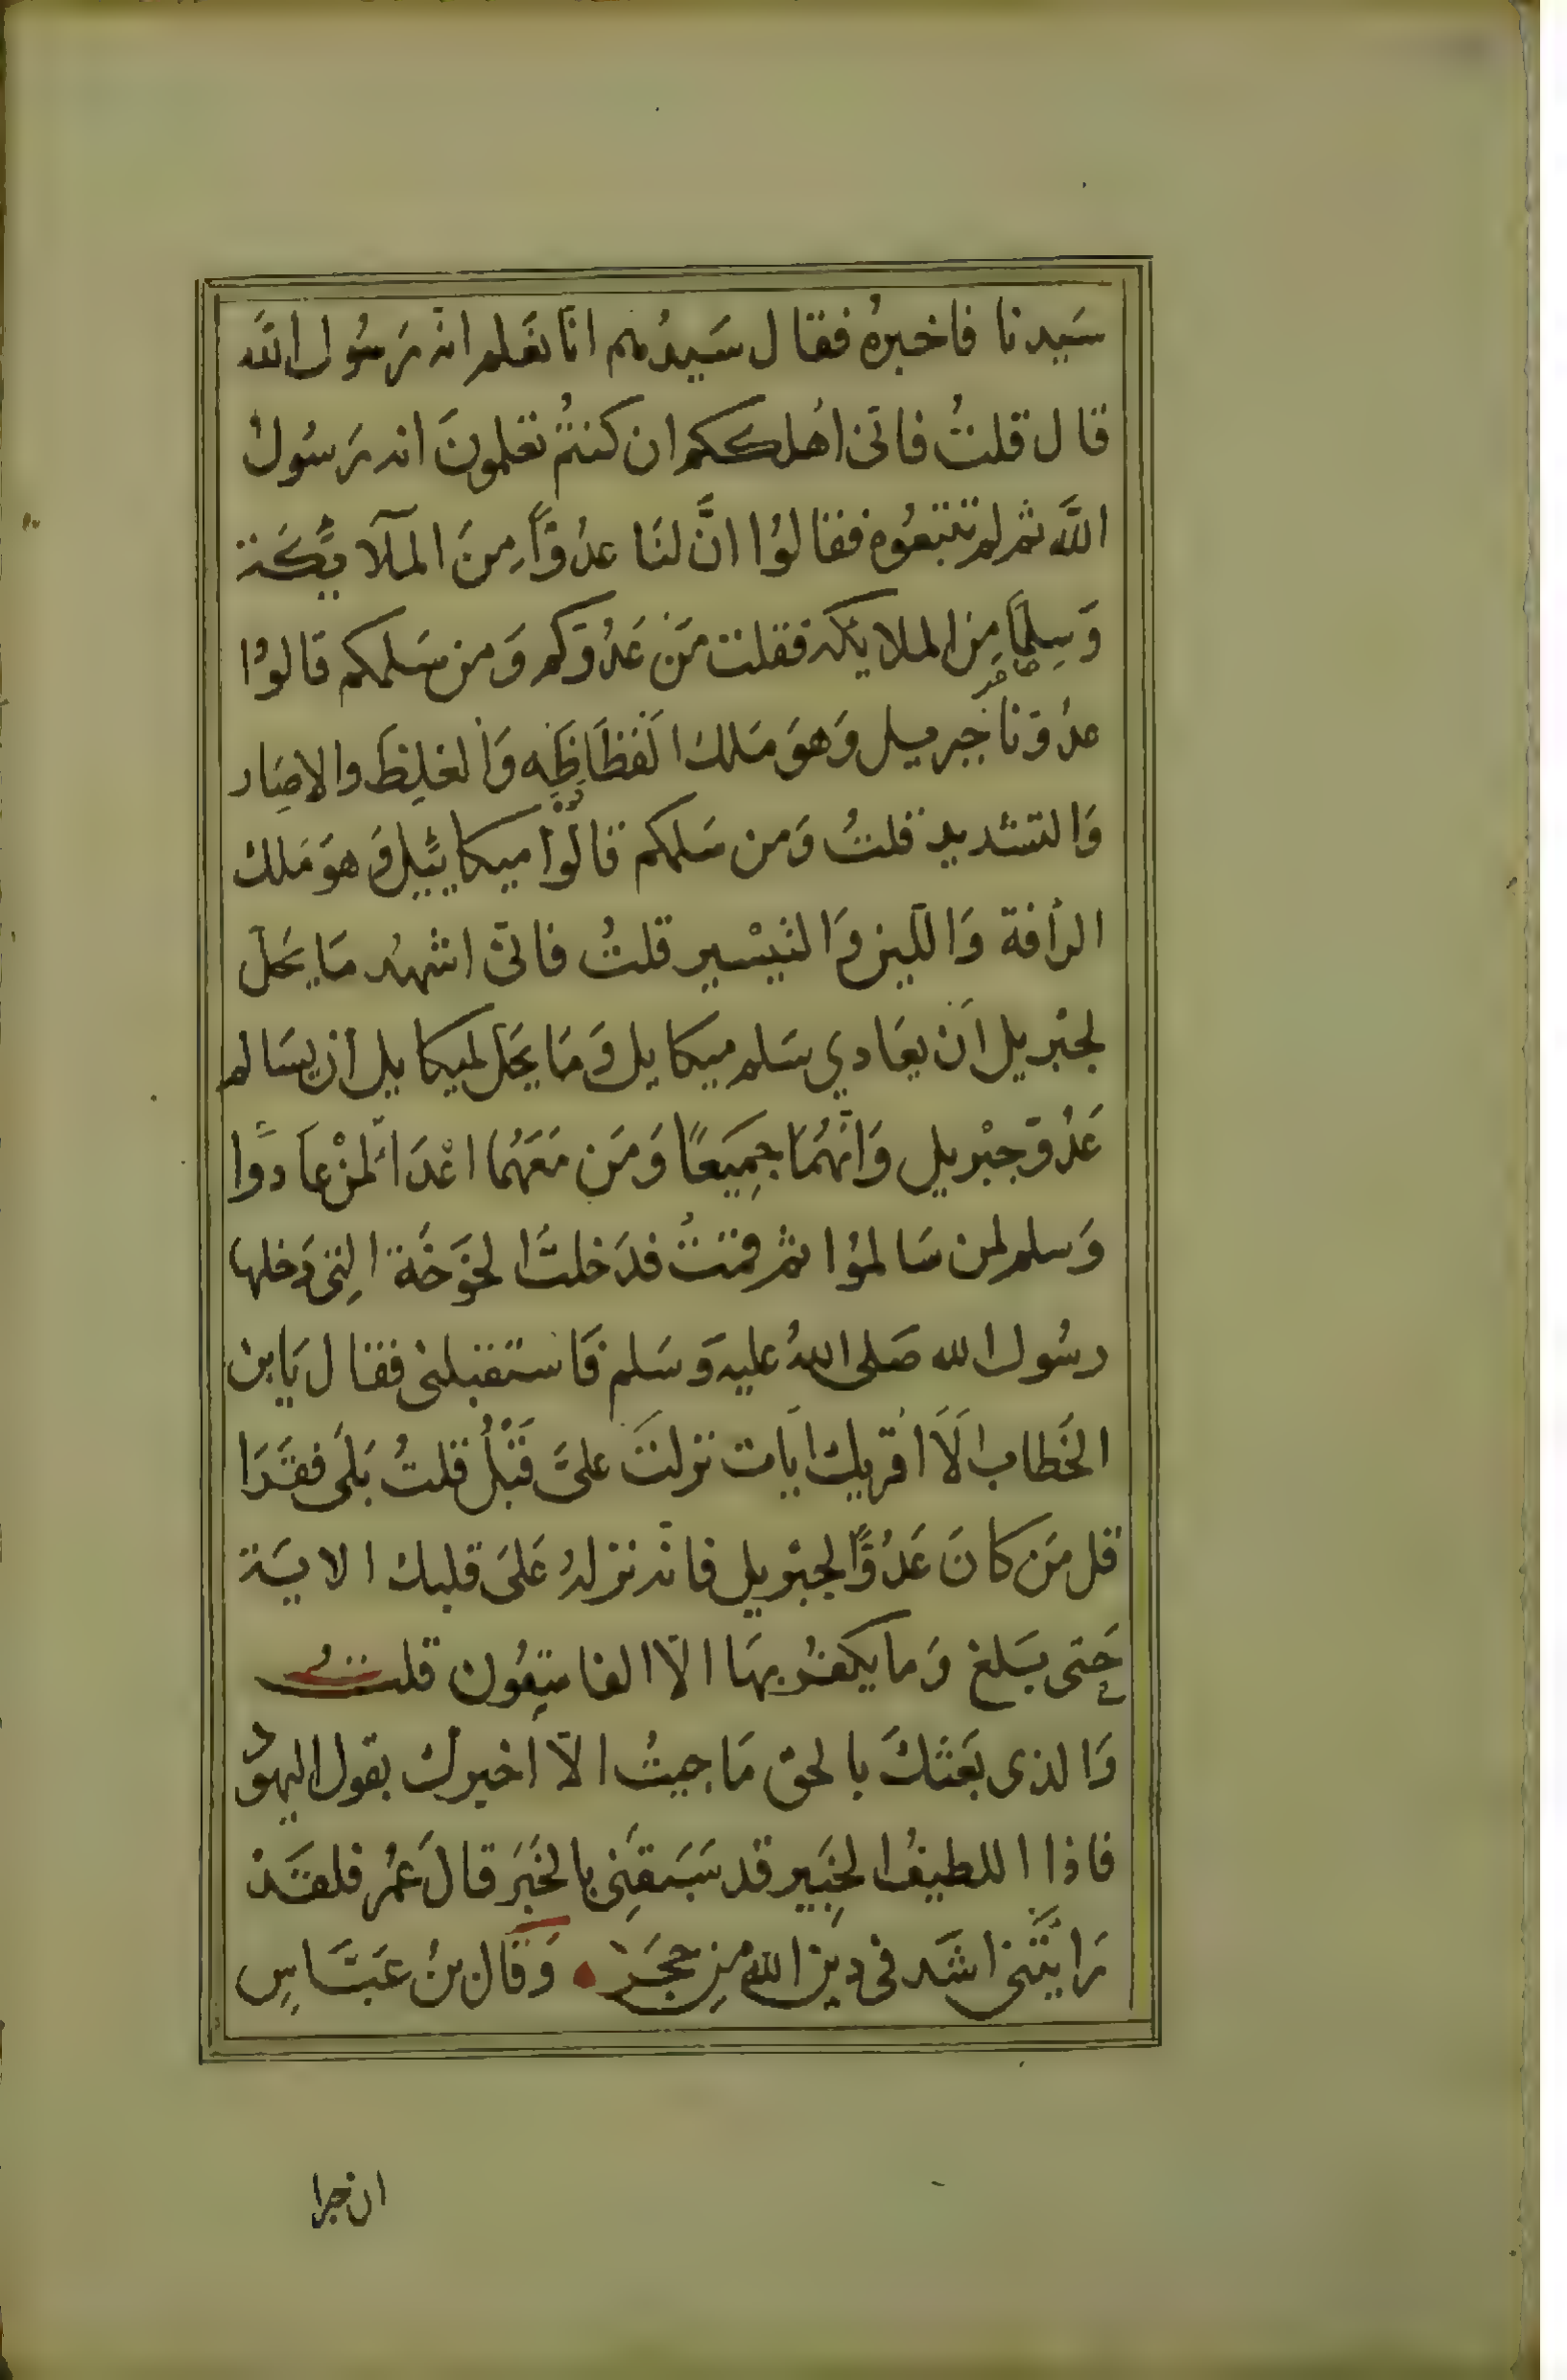 سَيدنا فاخبرهُ فقال سَيدُهم انّا نعَلم انه رَسُول الله
قال قلتُ فانى اهلككم ان كنتُم تعلمونَ انه رَسُول
اللَّه ثم لم تتبعُوه فقالوُا انَّ لنَا عدُوًّا مِنَ الملآئِكَة
وَسِلمًا مِن الملايكه فقلت مَن عَدُوّكم وَمن سَلمكم قالوُا
عدُوّنا جبريل وَهوَ مَلك الفَظَاظِه وَالغلِيظَ والاصَار
وَالتشديد قلتُ وَمن سَلمكم قالوُا ميكائيل وَهوَ مَلك
الرأفة وَاللّين وَالتيْسير قلتُ فانى اشهدُ مَا يحَل
لجبْريل اَن يعَادي سَلم ميكايل وَمَا يحَل لميكايل أن يسَالم
عَدُوّ جبْريل وَانّهُمَا جمِيَعًا وَمَن مَعَهُمَا اعْدَاء لمنْ عَادَوا
وَسلم لمن سَالموُا ثم قمتُ فدَخلتُ الخوَخَة التِى دَخلها
رسُول الله صَلى اللهُ عليه وَسَلم فَاستقبلنى فقال يَابن
الخَطاب اَلَا اُقريك اَيات نزلتَ علىَّ قَبْلُ قلتُ بَلَى فقَرَا
قل مَن كانَ عَدُوًّا لجبْريل فانّه نزلهُ عَلىَ قلبك الايَة
حَتى بَلغ وَما يكفُر بهَا الّا الفاسِقُون قلتُ
وَالذى بَعَثكَ بالحق مَا جيتُ الّا اُخبرك بقول اليهوُد
فاذا اللطيفُ الخبِير قد سَبَقَنِى بالخَبَر قالَ عُمر فلقَدْ
رَايْتَنى اشَد فى دِين الله مِن حجَرْ وَقَال بنُ عَبَّاسٍ
ان حبرا